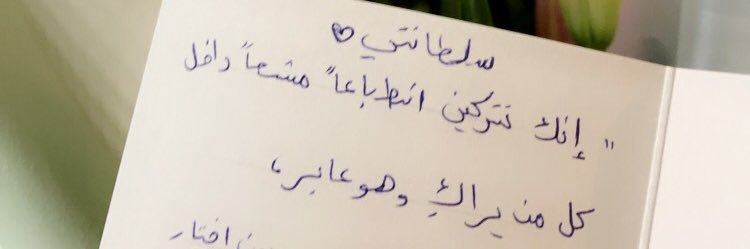 سلطانتي ♡
" إنك تتركين انطباعاً مشعاً داخل
كل من يراكِ وهو عابر،
اختار